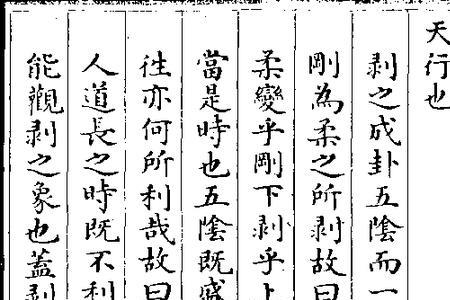 天行也
剥之成卦五陰而一
剛為柔之所剥故曰
柔變乎剛下剥乎上
當是時也五陰既盛
徃亦何所利哉故曰
人道長之時既不利
能觀剥之象也蓋剥